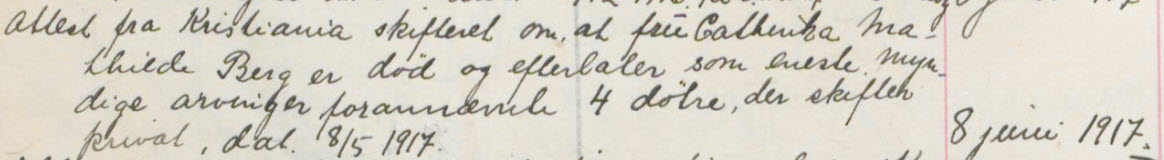 Attest fra Kristiania skifteret om, at frü Cathenka Ma-
thilde Berg er död og efterlater som eneste myn-
dige arvinger forannævnte 4 dötre, der skifter
privat, dat. 8/5 1917. 8 juni 1917.